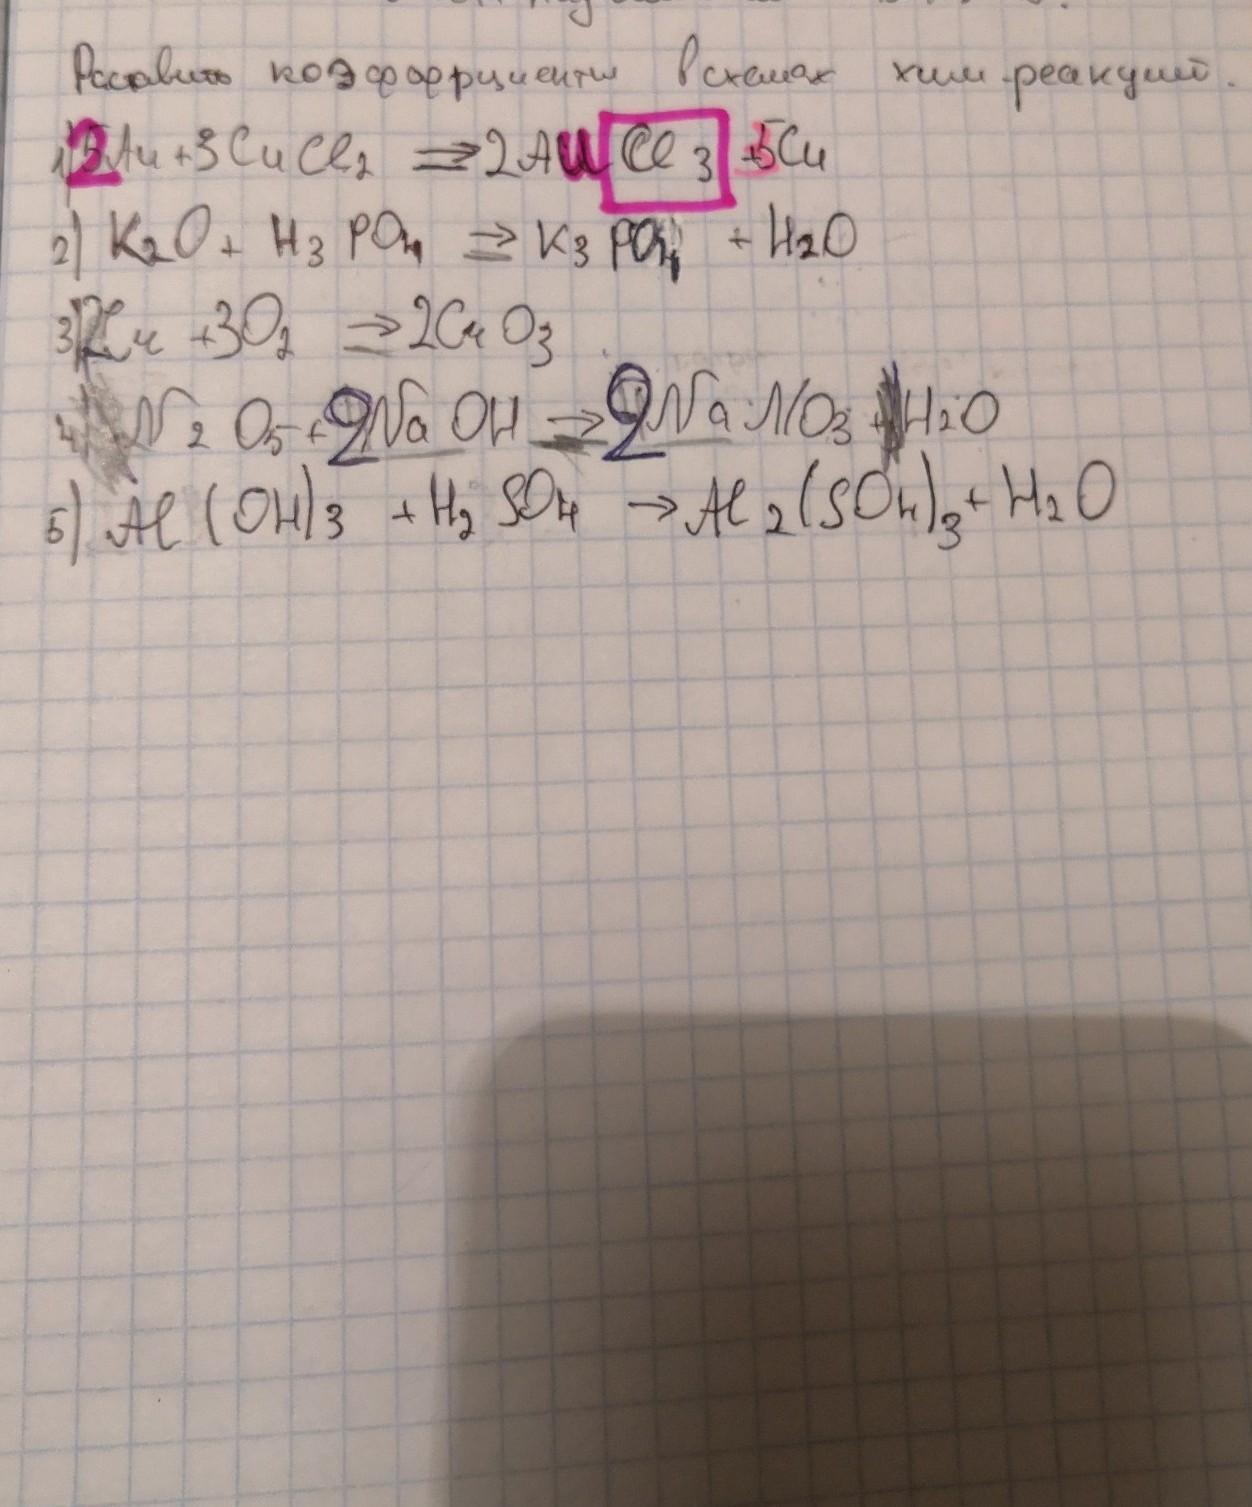 Расставить коэффициенты в схемах хим. реакций.
1) 2Au + 3CuCl2 ⇒ 2AuCl3 + 5Cu
2) K2O + H3PO4 ⇒ K3PO4 + H2O
3) 2Cu + 3O2 ⇒ 2CuO3
4) N2O5 + 2NaOH ⇒ 2NaNO3 + H2O
5) Al(OH)3 + H2SO4 → Al2(SO4)3 + H2O